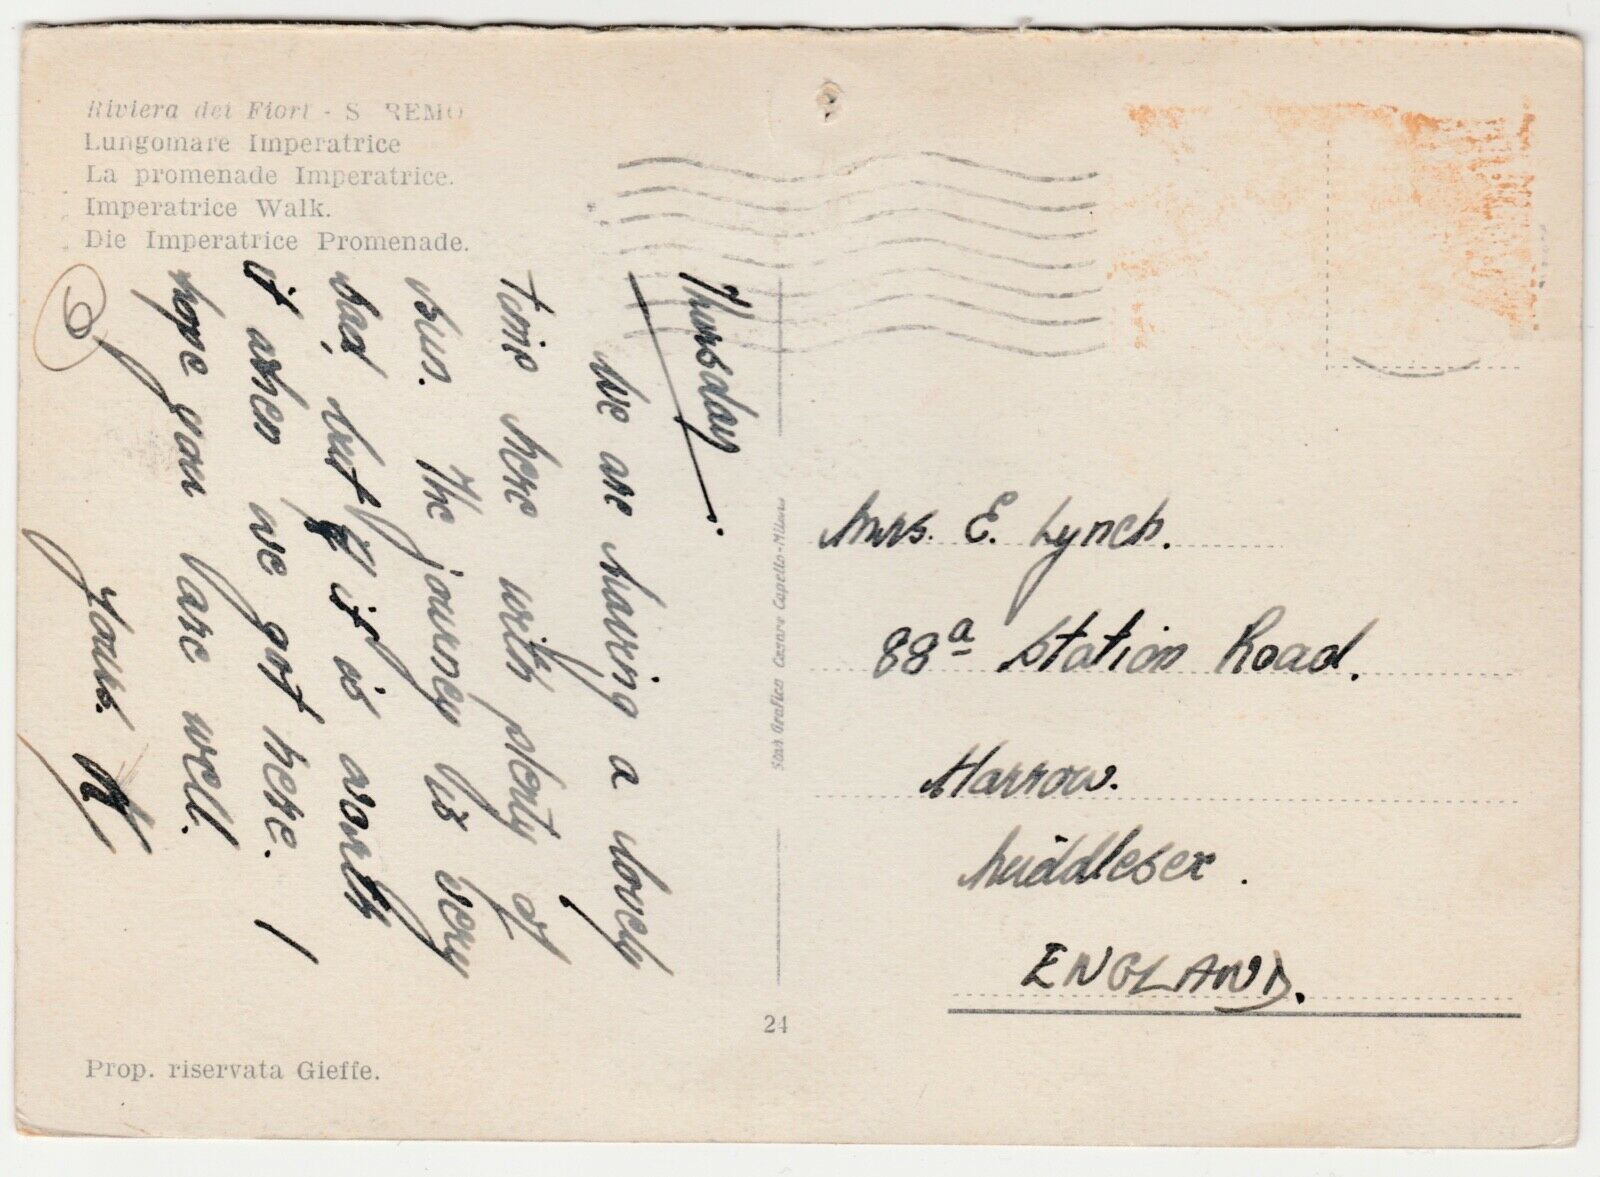 Riviera dei Fiori - S. REMO
Lungomare Imperatrice
La promenade Imperatrice.
Imperatrice Walk.
Die Imperatrice Promenade.
Thursday.
We are having a lovely
time here with plenty of
sun. The journey is very
bad, but it is worth
it when we get here. I
hope you are well.
Yours.
Mrs. E. Lynch.
88a Station Road.
Harrow.
Middlesex.
ENGLAND.
Stab. Grafico Cesare Capello-Milano
24
Prop. riservata Gieffe.